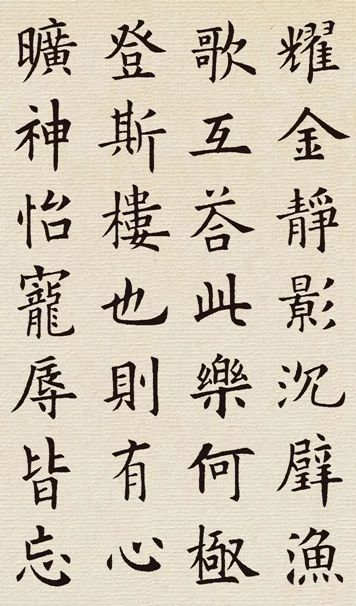 耀金靜影沉壁漁
歌互荅此樂何極
登斯樓也則有心
曠神怡寵辱皆忘